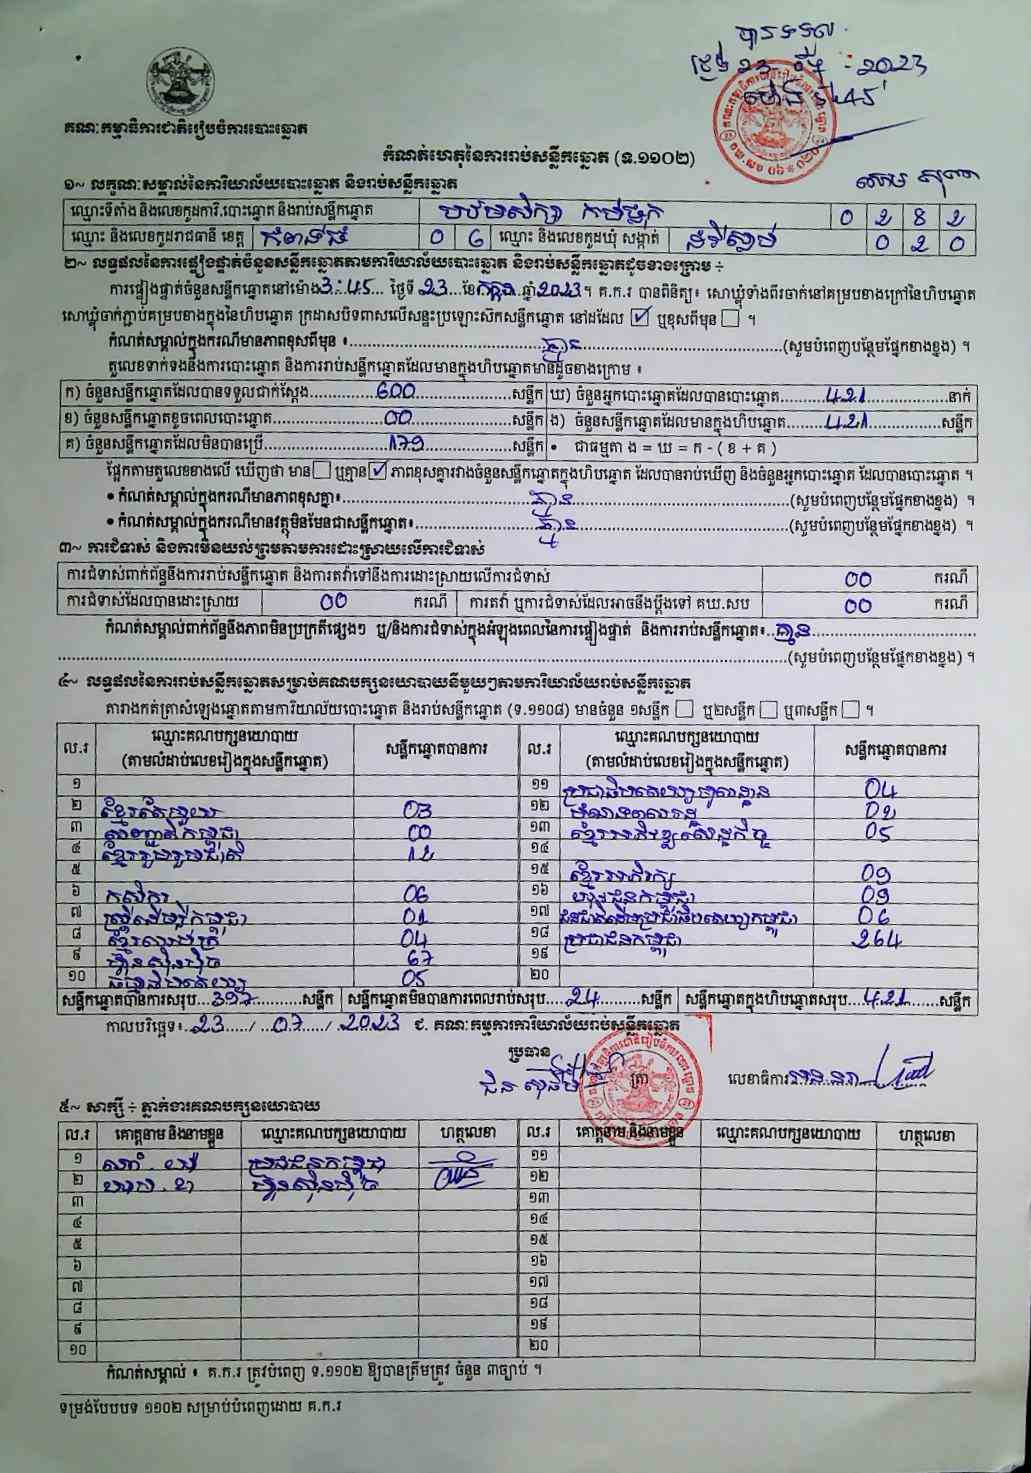 បានទទួល
ថ្ងៃទី 23 - 2023
ម៉ោង 45
គណៈកម្មាធិការជាតិរៀបចំការបោះឆ្នោត
កំណត់ហេតុនៃការរាប់សន្លឹកឆ្នោត (ទ.១១០២)
១~ លក្ខណៈសម្គាល់នៃការិយាល័យបោះឆ្នោត និងរាប់សន្លឹកឆ្នោត
ឈ្មោះទីតាំង និងលេខកូដការិ.បោះឆ្នោត និងរាប់សន្លឹកឆ្នោត បឋមសិក្សា 0 2 8 2
ឈ្មោះ និងលេខកូដរាជធានី ខេត្ត កំពង់ធំ 0 6 ឈ្មោះ និងលេខកូដឃុំ សង្កាត់ 0 2 0
២~ លទ្ធផលនៃការផ្ទៀងផ្ទាត់ចំនួនសន្លឹកឆ្នោតតាមការិយាល័យបោះឆ្នោត និងរាប់សន្លឹកឆ្នោតដូចខាងក្រោម ÷
ការផ្ទៀងផ្ទាត់ចំនួនសន្លឹកឆ្នោតនៅម៉ោង 3:45 ថ្ងៃទី 23 ខែ កក្កដា ឆ្នាំ 2023។ គ.ក.រ បានពិនិត្យ៖ សោឃ្លុំទាំងពីរចាក់នៅគម្របខាងក្រៅនៃហិបឆ្នោត
សោឃ្លុំចាក់ភ្ជាប់គម្របខាងក្នុងនៃហិបឆ្នោត ក្រដាសបិទពាសលើសន្ទះប្រឡោះសិកសន្លឹកឆ្នោត នៅដដែល ☑ ឬខុសពីមុន ☐ ។
កំណត់សម្គាល់ក្នុងករណីមានភាពខុសពីមុន ៖ គ្មាន (សូមបំពេញបន្ថែមផ្នែកខាងខ្នង) ។
តួលេខទាក់ទងនឹងការបោះឆ្នោត និងការរាប់សន្លឹកឆ្នោតដែលមានក្នុងហិបឆ្នោតមានដូចខាងក្រោម ៖
ក) ចំនួនសន្លឹកឆ្នោតដែលបានទទួលជាក់ស្តែង 600 សន្លឹក ឃ) ចំនួនអ្នកបោះឆ្នោតដែលបានបោះឆ្នោត 421 នាក់
ខ) ចំនួនសន្លឹកឆ្នោតខូចពេលបោះឆ្នោត 00 សន្លឹក ង) ចំនួនសន្លឹកឆ្នោតដែលមានក្នុងហិបឆ្នោត 421 សន្លឹក
គ) ចំនួនសន្លឹកឆ្នោតដែលមិនបានប្រើ 179 សន្លឹក • ជាធម្មតា ង = ឃ = ក - ( ខ + គ )
ផ្អែកតាមតួលេខខាងលើ ឃើញថា មាន ☐ ឬគ្មាន ☑ ភាពខុសគ្នារវាងចំនួនសន្លឹកឆ្នោតក្នុងហិបឆ្នោត ដែលបានរាប់ឃើញ និងចំនួនអ្នកបោះឆ្នោត ដែលបានបោះឆ្នោត ។
• កំណត់សម្គាល់ក្នុងករណីមានភាពខុសគ្នា៖ គ្មាន (សូមបំពេញបន្ថែមផ្នែកខាងខ្នង) ។
• កំណត់សម្គាល់ក្នុងករណីមានវត្ថុមិនមែនជាសន្លឹកឆ្នោត៖ គ្មាន (សូមបំពេញបន្ថែមផ្នែកខាងខ្នង) ។
៣~ ការជំទាស់ និងការមិនយល់ព្រមតាមការដោះស្រាយលើការជំទាស់
ការជំទាស់ពាក់ព័ន្ធនឹងការរាប់សន្លឹកឆ្នោត និងការតវ៉ាទៅនឹងការដោះស្រាយលើការជំទាស់ 00 ករណី
ការជំទាស់ដែលបានដោះស្រាយ 00 ករណី ការតវ៉ា ឬការជំទាស់ដែលអាចនឹងប្តឹងទៅ គឃ.សប 00 ករណី
កំណត់សម្គាល់ពាក់ព័ន្ធនឹងភាពមិនប្រក្រតីផ្សេងៗ ឬ/និងការជំទាស់ក្នុងអំឡុងពេលនៃការផ្ទៀងផ្ទាត់ និងការរាប់សន្លឹកឆ្នោត៖ គ្មាន
(សូមបំពេញបន្ថែមផ្នែកខាងខ្នង) ។
៤~ លទ្ធផលនៃការរាប់សន្លឹកឆ្នោតសម្រាប់គណបក្សនយោបាយនីមួយៗតាមការិយាល័យរាប់សន្លឹកឆ្នោត
តារាងកត់ត្រាសំឡេងឆ្នោតតាមការិយាល័យបោះឆ្នោត និងរាប់សន្លឹកឆ្នោត (ទ.១១០៨) មានចំនួន ១សន្លឹក ☐ ឬ២សន្លឹក ☐ ឬ៣សន្លឹក ☐ ។
ល.រ ឈ្មោះគណបក្សនយោបាយ (តាមលំដាប់លេខរៀងក្នុងសន្លឹកឆ្នោត) សន្លឹកឆ្នោតបានការ ល.រ ឈ្មោះគណបក្សនយោបាយ (តាមលំដាប់លេខរៀងក្នុងសន្លឹកឆ្នោត) សន្លឹកឆ្នោតបានការ
១ ១១ 04
២ ខ្មែរតែមួយ 03 ១២ 02
៣ កម្ពុជា 00 ១៣ ខ្មែរអភិវឌ្ឍសេដ្ឋកិច្ច 05
៤ ខ្មែររួបរួមជាតិ 12 ១៤
៥ ១៥ ខ្មែរអភិរក្ស 09
៦ កសិករ 06 ១៦ យុវជនកម្ពុជា 09
៧ ស្ត្រីដើម្បីកម្ពុជា 01 ១៧ ជនជាតិដើមប្រជាធិបតេយ្យកម្ពុជា 06
៨ 04 ១៨ ប្រជាជនកម្ពុជា 264
៩ ហ៊្វុនស៊ិនប៉ិច 67 ១៩
១០ ធម្មាធិបតេយ្យ 05 ២០
សន្លឹកឆ្នោតបានការសរុប 397 សន្លឹក សន្លឹកឆ្នោតមិនបានការពេលរាប់សរុប 24 សន្លឹក សន្លឹកឆ្នោតក្នុងហិបឆ្នោតសរុប 421 សន្លឹក
កាលបរិច្ឆេទ៖ 23 / 07 / 2023 ជ. គណៈកម្មការការិយាល័យរាប់សន្លឹកឆ្នោត
ប្រធាន
ត្រា
លេខាធិការ
៥~ សាក្សី ÷ ភ្នាក់ងារគណបក្សនយោបាយ
ល.រ គោត្តនាម និងនាមខ្លួន ឈ្មោះគណបក្សនយោបាយ ហត្ថលេខា ល.រ គោត្តនាម និងនាមខ្លួន ឈ្មោះគណបក្សនយោបាយ ហត្ថលេខា
១ ប្រជាជនកម្ពុជា ១១
២ ហ៊្វុនស៊ិនប៉ិច ១២
៣ ១៣
៤ ១៤
៥ ១៥
៦ ១៦
៧ ១៧
៨ ១៨
៩ ១៩
១០ ២០
កំណត់សម្គាល់ ៖ គ.ក.រ ត្រូវបំពេញ ទ.១១០២ ឱ្យបានត្រឹមត្រូវ ចំនួន ៣ច្បាប់ ។
ទម្រង់បែបបទ ១១០២ សម្រាប់បំពេញដោយ គ.ក.រ